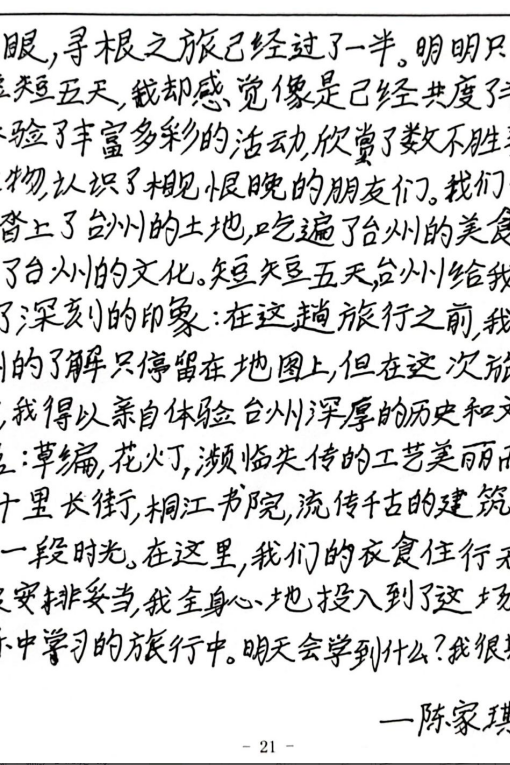 眼,寻根之旅已经过了一半。明明只
短五天,我却感觉像是已经共度了
验了丰富多彩的活动,欣赏了数不胜
物,认识了相见恨晚的朋友们。我们
踏上了台州的土地,吃遍了台州的美食
了台州的文化。短短五天,台州给我
了深刻的印象:在这趟旅行之前,我
的了解只停留在地图上,但在这次旅
,我得以亲自体验台州深厚的历史和文
:草编,花灯,濒临失传的工艺美丽而
十里长街,桐江书院,流传千古的建筑
一段时光。在这里,我们的衣食住行无
安排妥当,我全身心地投入到了这场
乐中学习的旅行中。明天会学到什么?我很期
—陈家琪
- 21 -